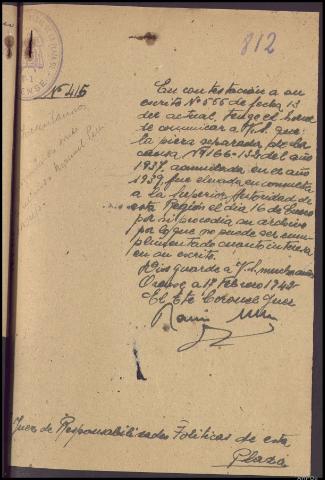 812
Nº 416
En contestación a su
escrito Nº 566 de fecha 13
del actual, tengo el honor
de comunicar a V.S. que
la pieza separada de la
causa Nº 166-138 del año
1937, acumulada en el año
1939, fue elevada en consulta
a la Superior Autoridad de
esta Región el día 16 de Enero
por si procedia su archivo
por lo que no puede ser cum-
plimentado cuanto interesa
en su escrito.
Dios guarde a V.S. muchos años
Orense a 17 Febrero 1942
El Cte Coronel Juez
Juez de Responsabilidades Politicas de esta
Plaza